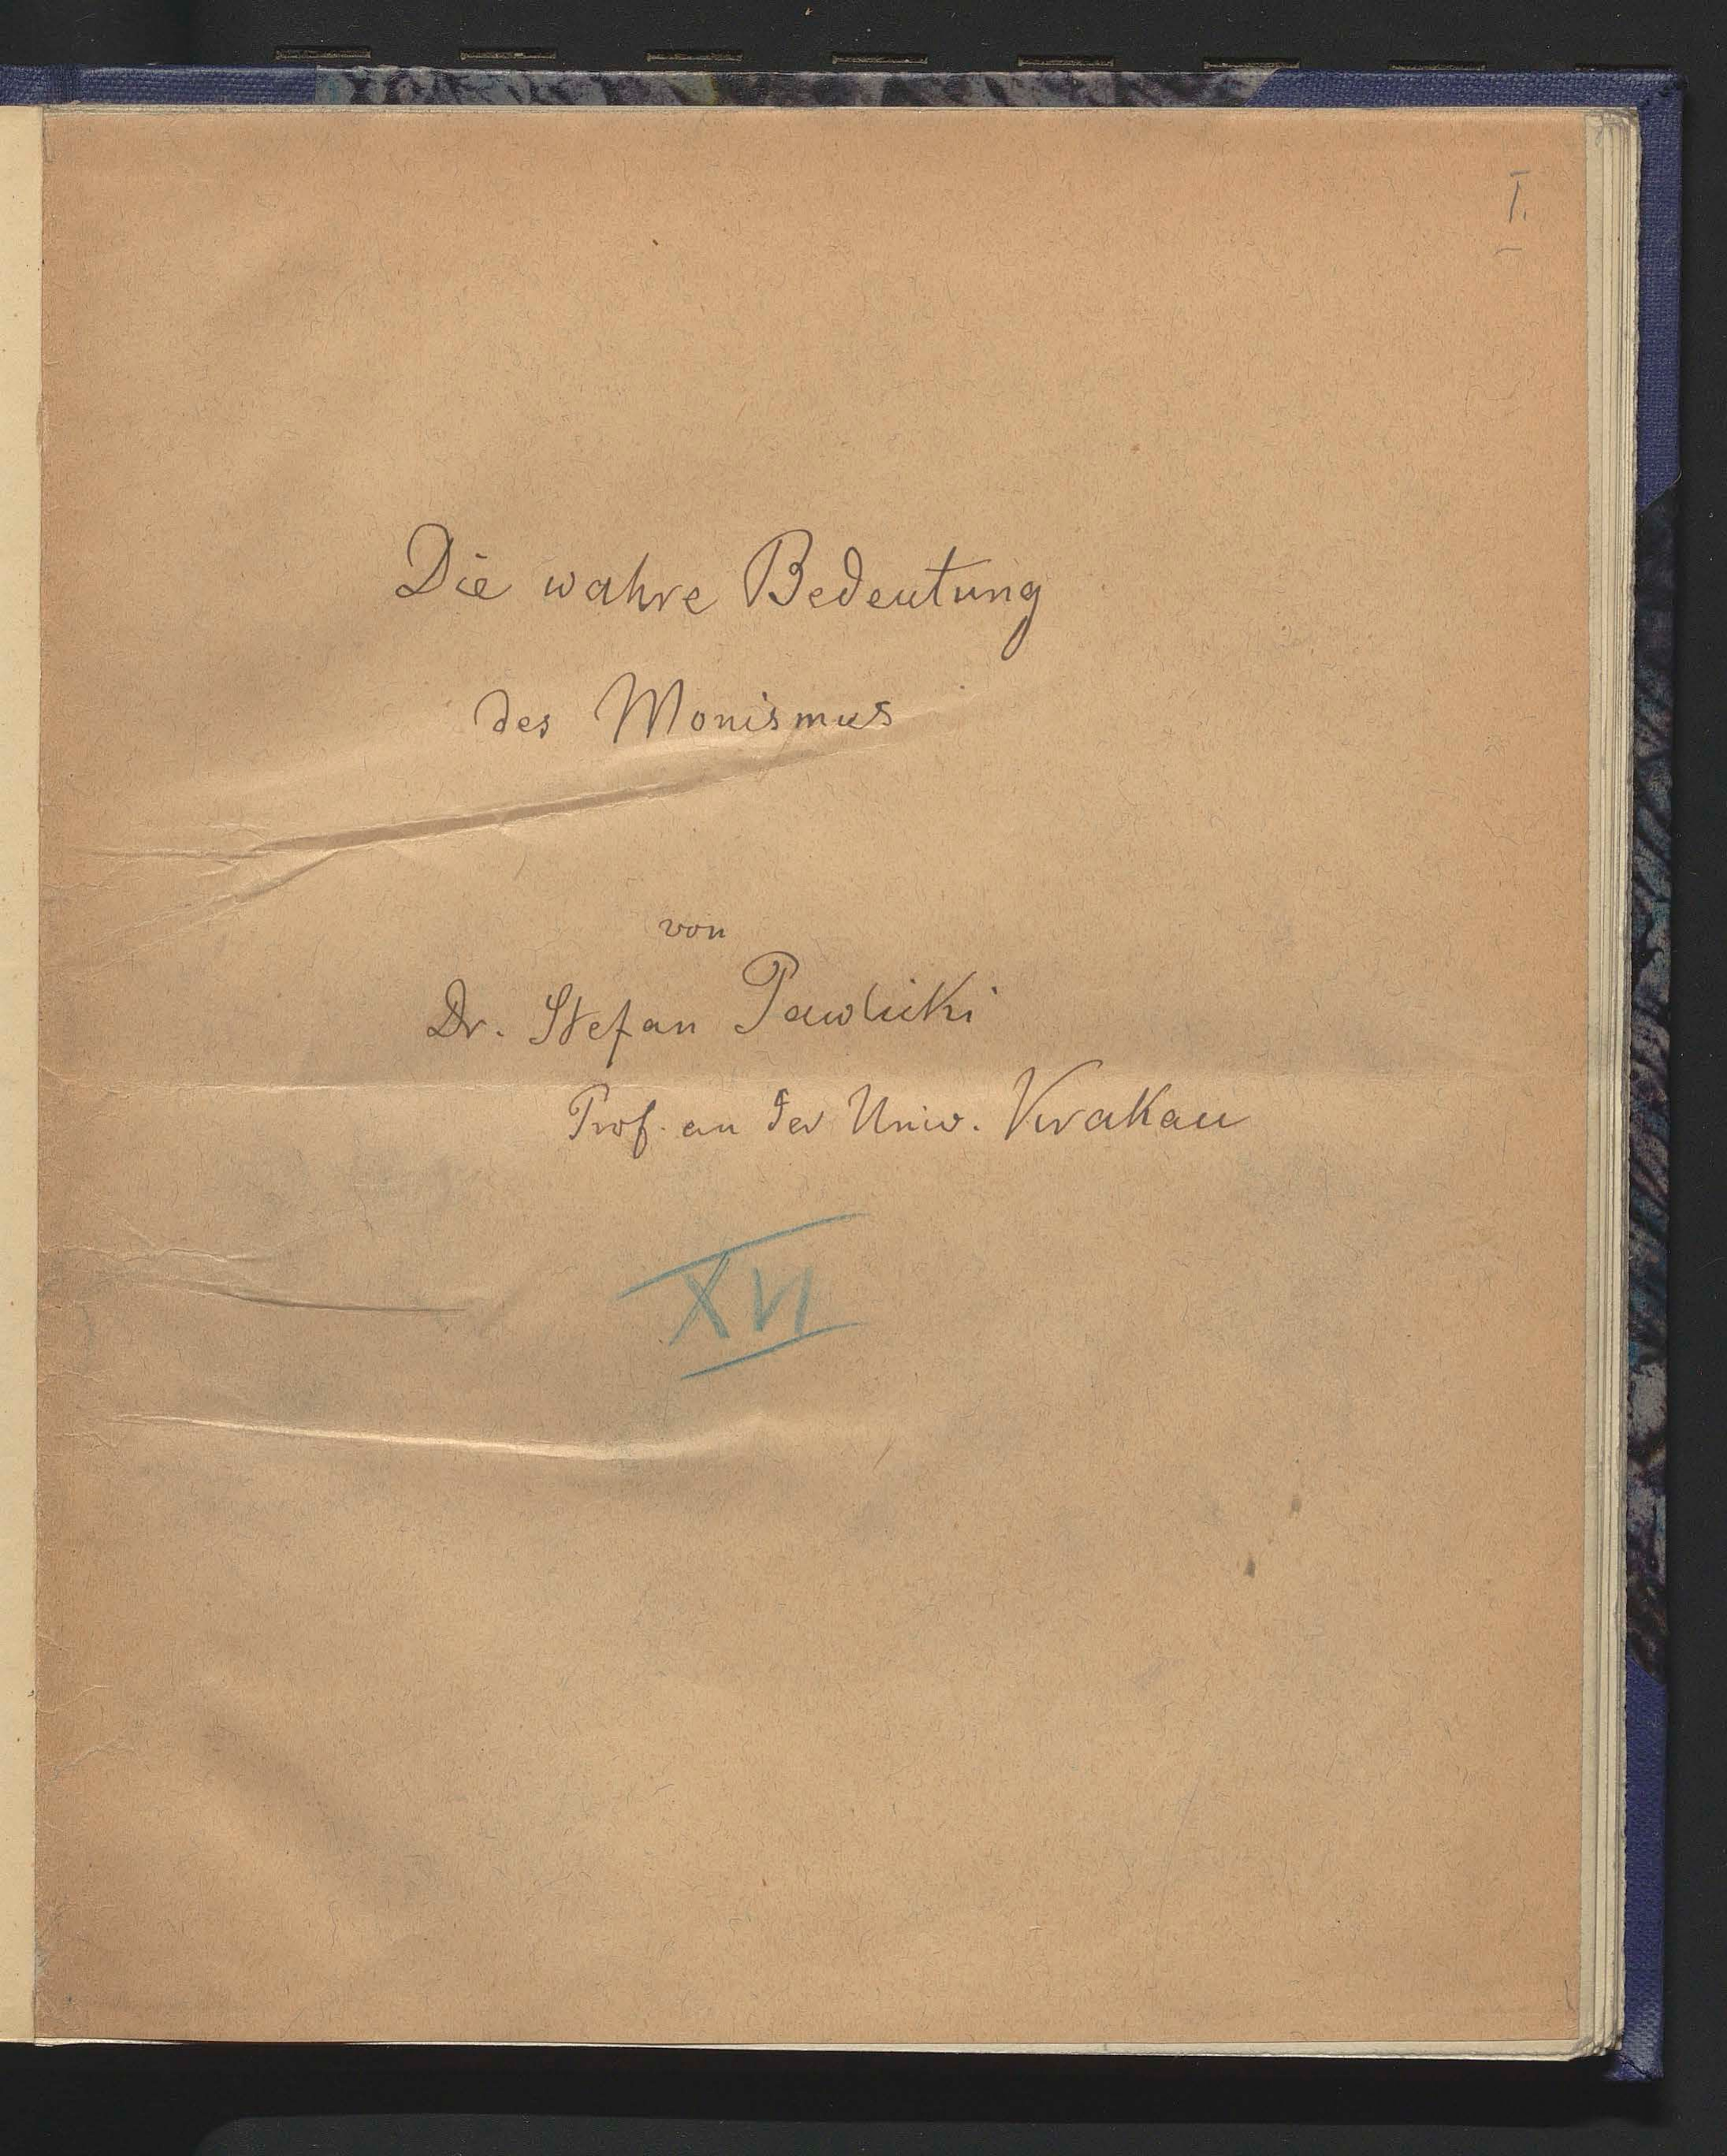 I.
Die wahre Bedeutung
des Monismus
von
Dr. Stefan Pawlicki
Prof. an der Univ. Krakau
XVI